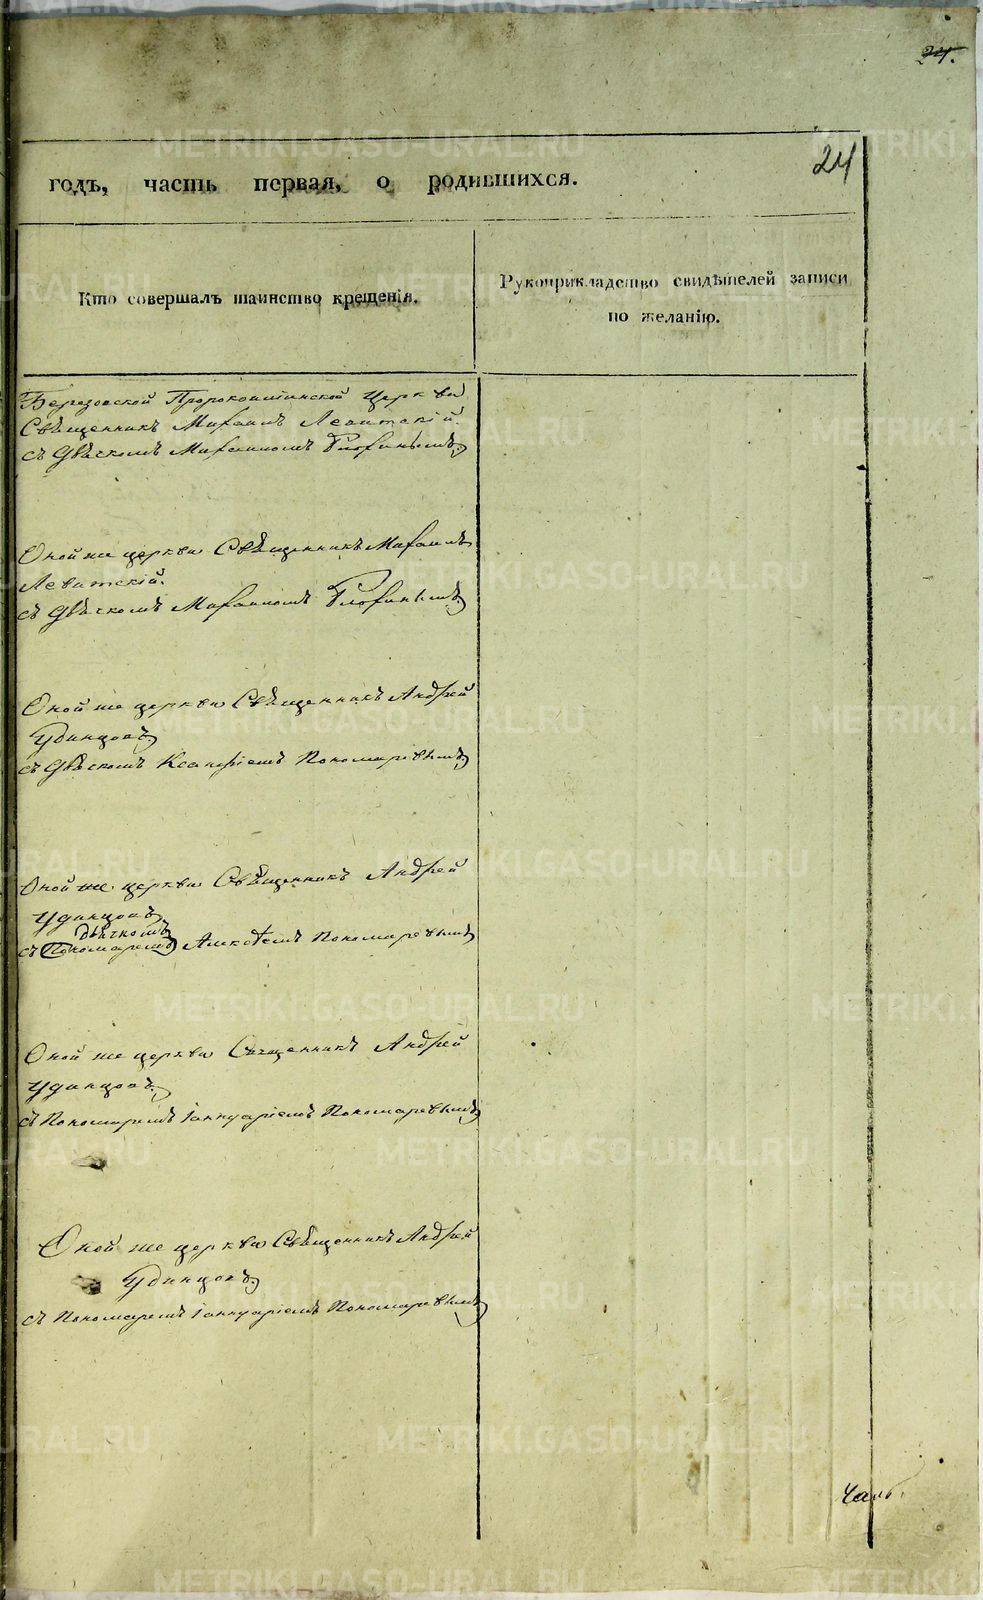 24.
24
годъ, часть первая, о родившихся.
Кто совершалъ таинство крещенія.
Рукоприкладство свидѣтелей записи
по желанію.
Березовской Пророкоильинской Церкви
Священникъ Михаилъ Левитскій.
съ Дьячкомъ Михаиломъ
Оной же церкви Священникъ Михаилъ
Левитскій.
съ Дьячкомъ Михаиломъ
Оной же церкви Священникъ Андрей
Удинцовъ
съ Дьячкомъ Ксанфіемъ Пономаревымъ
Оной же церкви Священникъ Андрей
Удинцовъ
дьячкомъ
съ Пономаремъ Пономаревымъ
Оной же церкви Священникъ Андрей
Удинцовъ.
съ Пономаремъ Іаннуаріемъ Пономаревымъ
Оной же церкви Священникъ Андрей
Удинцовъ.
съ Пономаремъ Іаннуаріемъ Пономаревымъ
METRIKI.GASO-URAL.RU